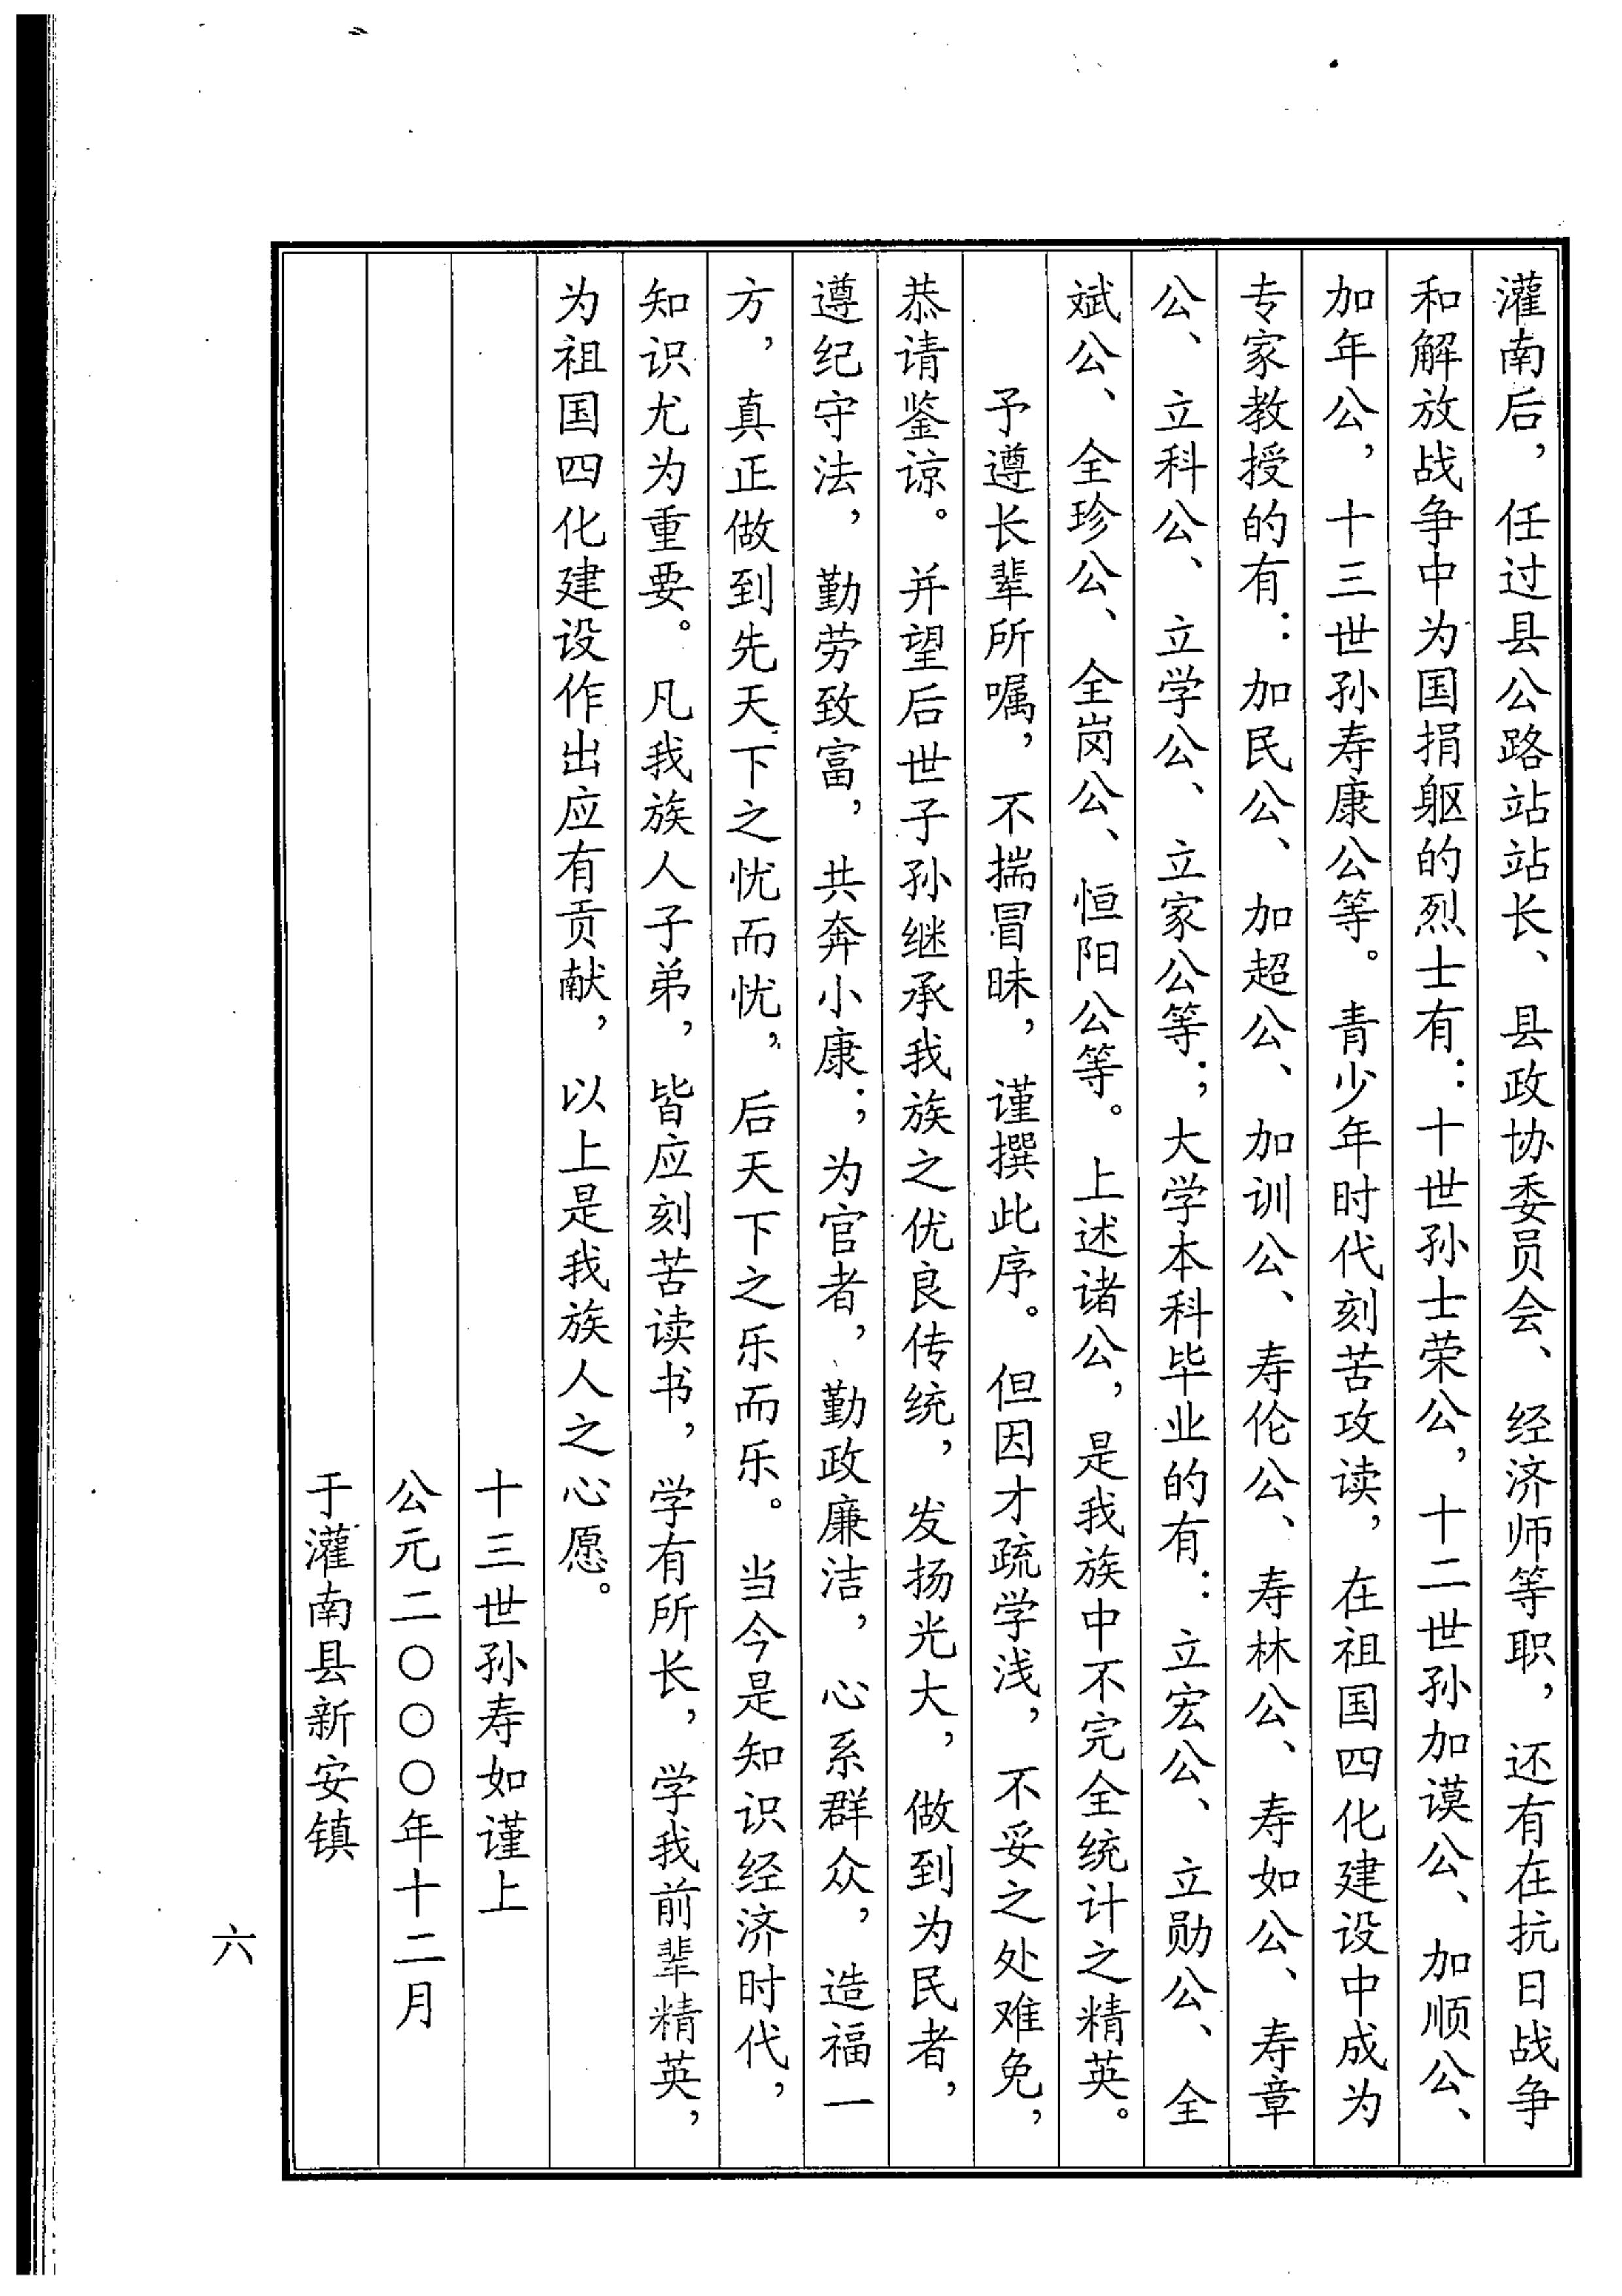 灌南后，任过县公路站站长、县政协委员会、经济师等职，还有在抗日战争
和解放战争中为国捐躯的烈士有：十世孙士荣公，十二世孙加谟公、加顺公、
加年公，十三世孙寿康公等。青少年时代刻苦攻读，在祖国四化建设中成为
专家教授的有：加民公、加超公、加训公、寿伦公、寿林公、寿如公、寿章
公、立科公、立学公、立家公等；大学本科毕业的有：立宏公、立勋公、全
斌公、全珍公、全岗公、恒阳公等。上述诸公，是我族中不完全统计之精英。
予遵长辈所嘱，不揣冒昧，谨撰此序。但因才疏学浅，不妥之处难免，
恭请鉴谅。并望后世子孙继承我族之优良传统，发扬光大，做到为民者，
遵纪守法，勤劳致富，共奔小康；为官者，勤政廉洁，心系群众，造福一
方，真正做到先天下之忧而忧，后天下之乐而乐。当今是知识经济时代，
知识尤为重要。凡我族人子弟，皆应刻苦读书，学有所长，学我前辈精英，
为祖国四化建设作出应有贡献，以上是我族人之心愿。
十三世孙寿如谨上
公元二〇〇〇年十二月
于灌南县新安镇
六